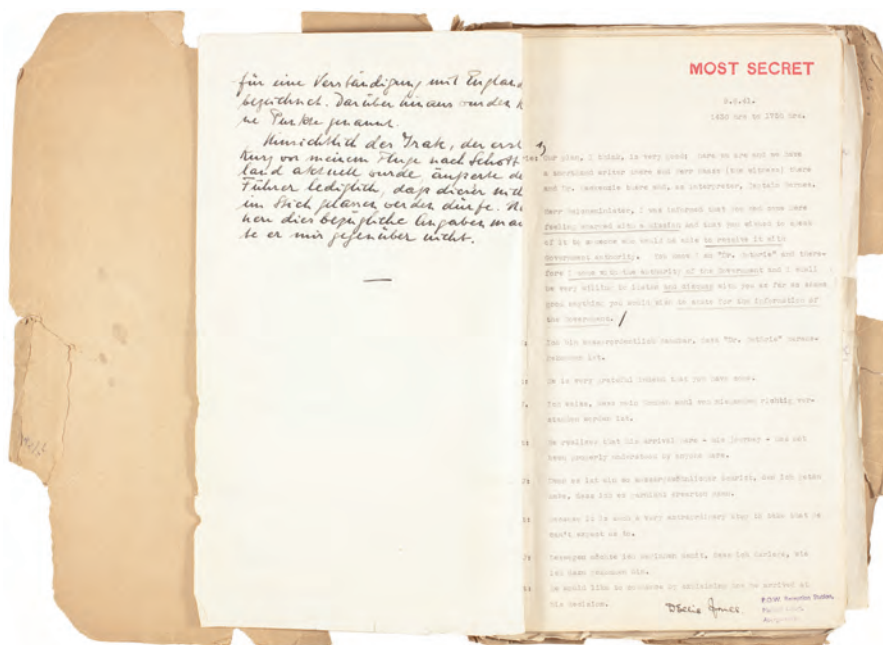 für eine Verständigung mit England
bezeichnet. Darüber hinaus wurden k
ne Punkte genannt.
Hinsichtlich des Irak, der erst
kurz vor meinem Fluge nach Schott
land aktuell wurde, äußerte de
Führer lediglich, daß dieser nich
im Stich gelassen werden dürfe.
diesbezügliche Angaben mach
te er mir gegenüber nicht.
MOST SECRET
9.6.41.
1430 hrs to 1750 hrs.
Our plan, I think, is very good: here we are and we have
a shorthand writer there and Herr (his witness) there
and Dr. Mackenzie there and, as interpreter, Captain Barnes.
Herr Reichsminister, I was informed that you had come here
feeling charged with a mission and that you wished to speak
of it to someone who would be able to receive it with
Government authority. You know I am "Dr. Guthrie" and there-
fore I come with the authority of the Government and I shall
be very willing to listen and discuss with you as far as seems
good anything you would wish to state for the information of
the Government.
Ich bin ausserordentlich dankbar, dass "Dr. Guthrie" heraus-
gekommen ist.
He is very grateful indeed that you have come.
Ich weiss, dass mein Kommen wohl von niemandem richtig ver-
standen worden ist.
He realises that his arrival here - his journey - has not
been properly understood by anyone here.
Denn es ist ein so aussergewöhnlicher Schritt, den ich getan
habe, dass ich es garnicht erwarten kann.
Because it is such a very extraordinary step to take that he
can't expect us to.
Deswegen möchte ich beginnen damit, dass ich darlege, wie
ich dazu gekommen bin.
He would like to commence by explaining how he arrived at
his decision.
P.O.W. Reception Station,